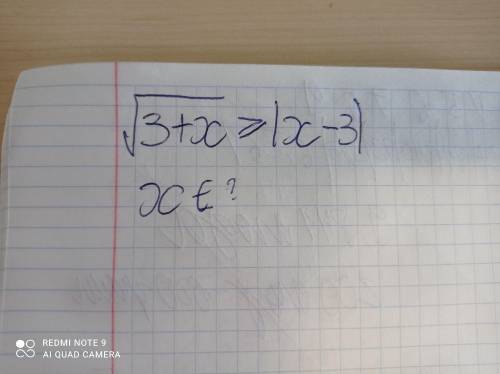 √3+x ≥ |x-3|
x ∈ ?
REDMI NOTE 9
AI QUAD CAMERA